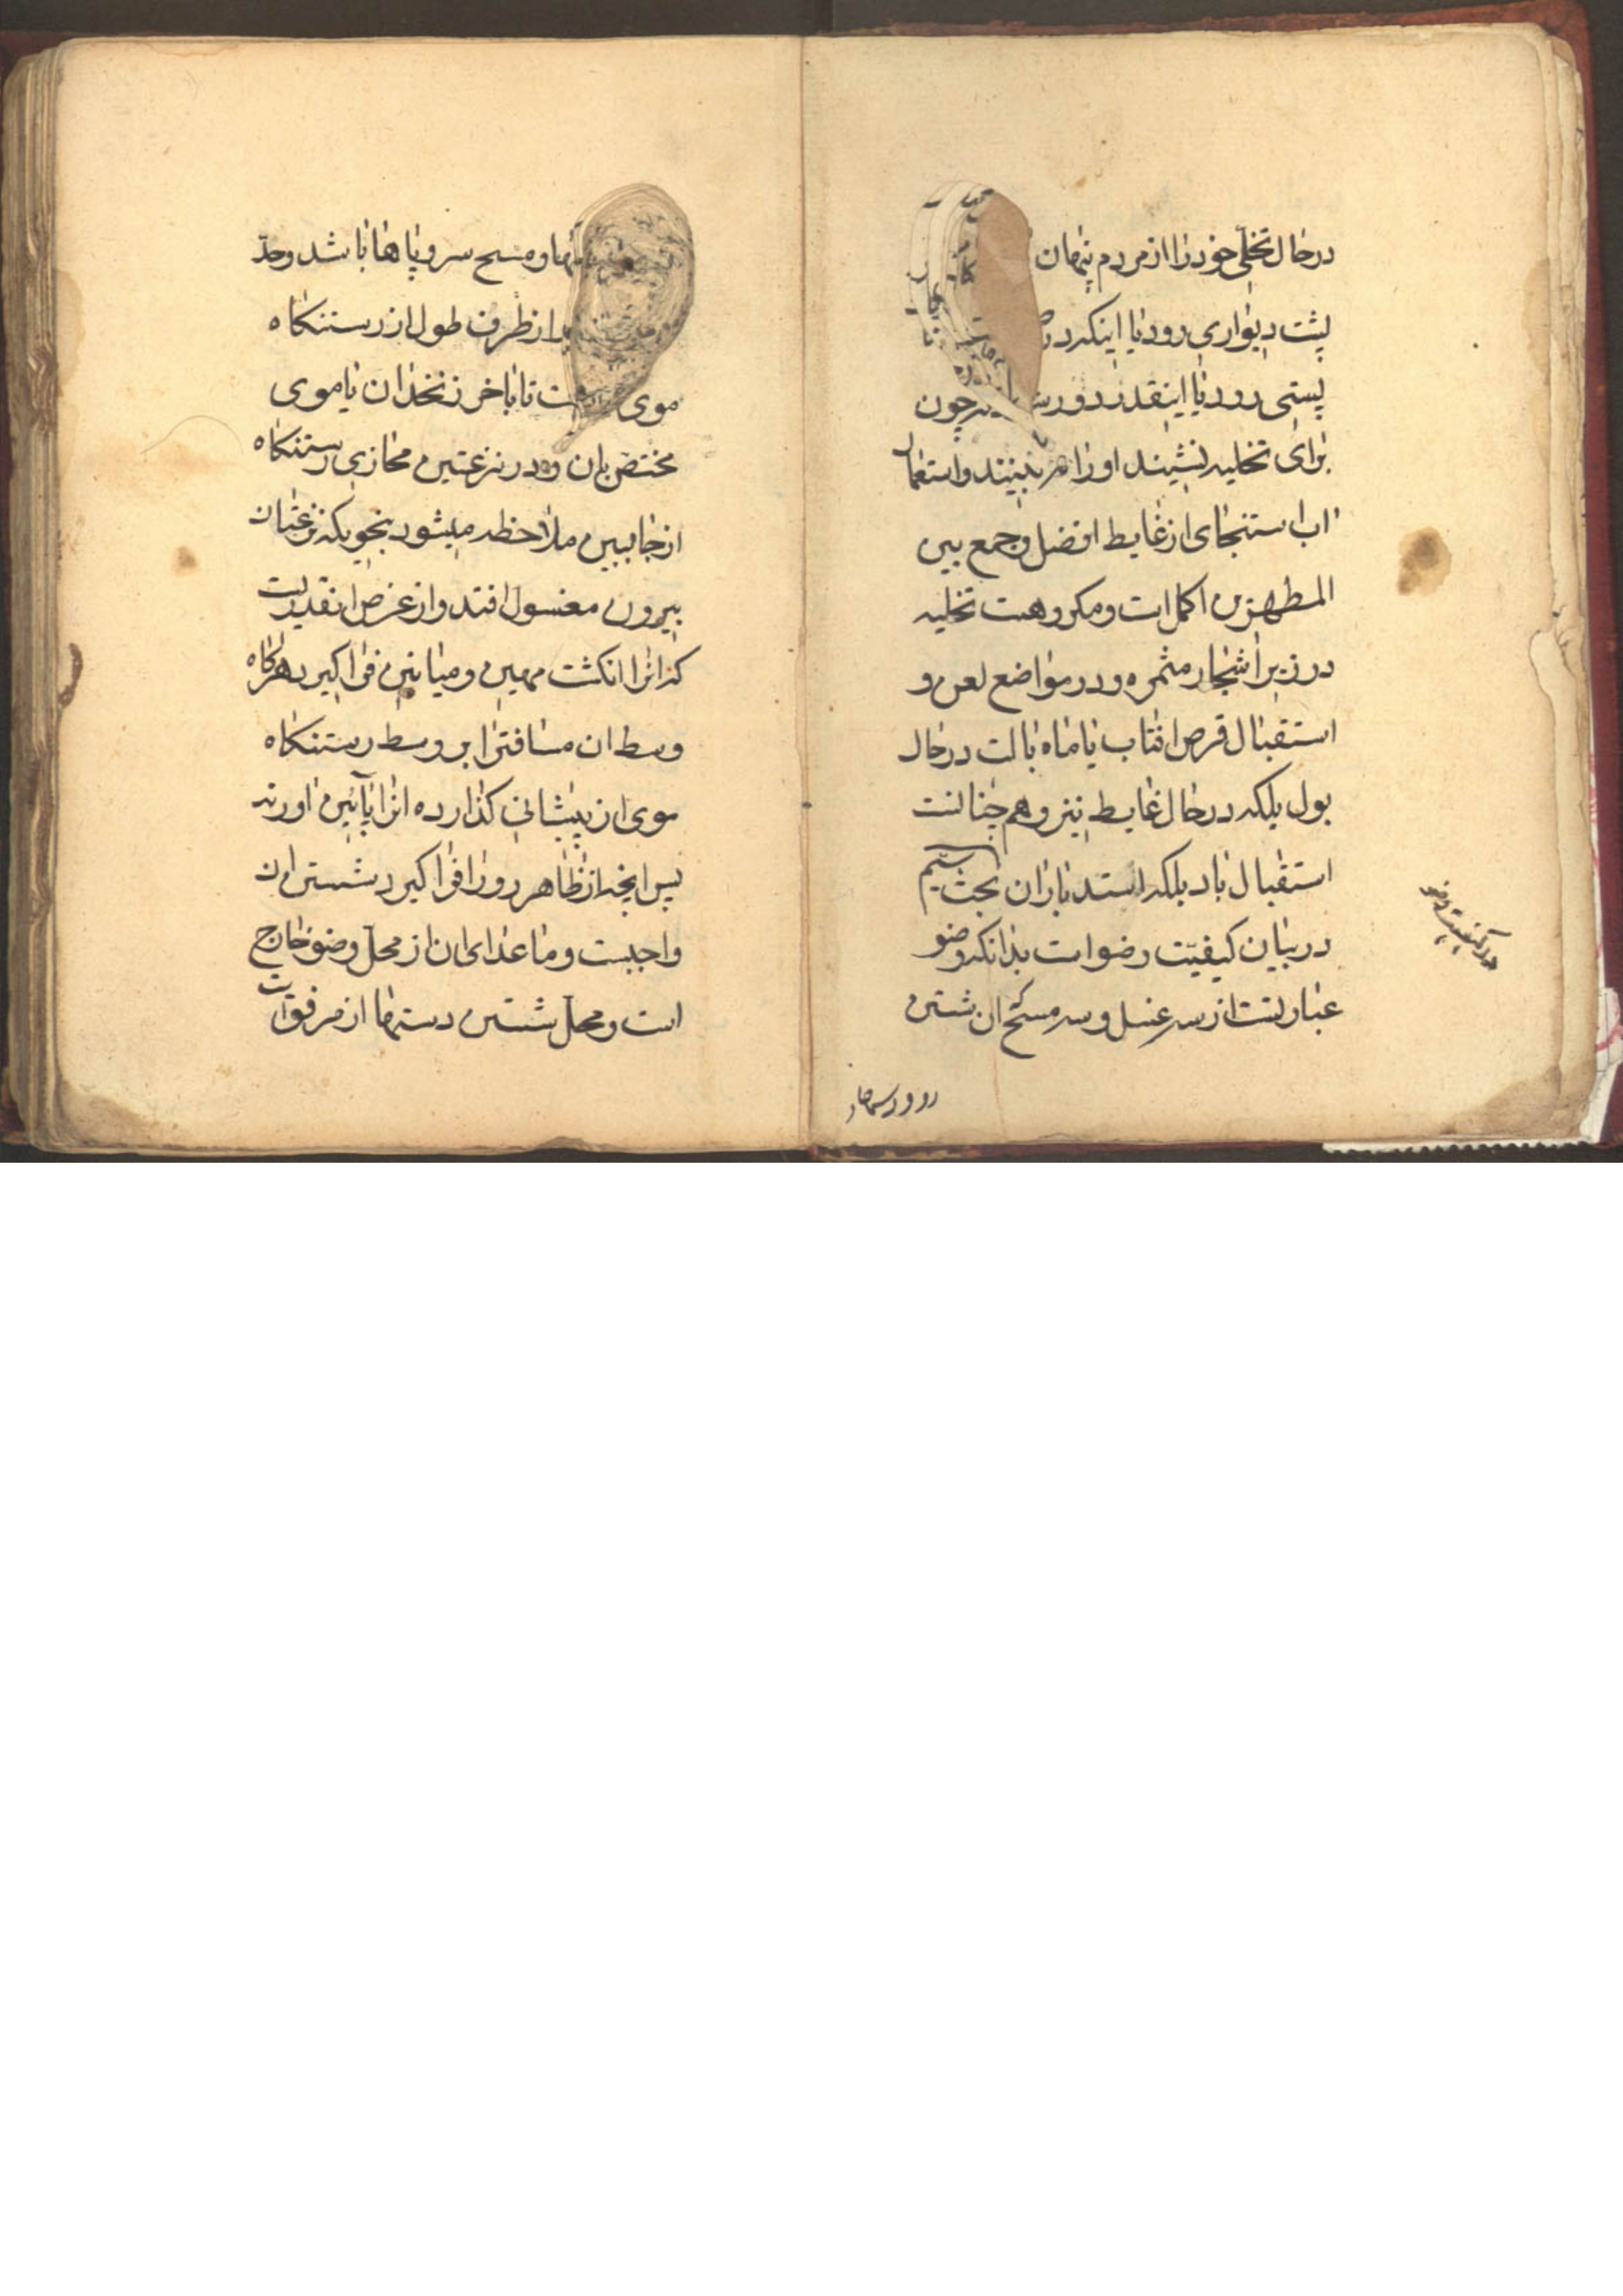 درحال تخلّی خود را از مردم پنهان
پشت دیواری رود یا اینکه در
پستی رود یا اینقدر دور چون
برای تخلیه نشیند او را نبینند و استعمال
اب استنجای از غایط افضل و جمع بین
المطهرین اکمل است و مکروهست تخلیه
در زیر اشجار مثمره و در مواضع لعن و
استقبال قرص افتاب یا ماه بالت در حال
بول بلکه در حال غایط نیز و هم چنانست
استقبال باد بلکه استدبار ان بحث سیّم
در بیان کیفیّت وضو است بدانکه وضو
عبارتست از سه غسل و سه مسح ان شستن
در کیفیت وضو
رو و دستها
و مسح سر و پاها باشد و حدّ
از طرف طول از رستنکاه
موی تا باخر زنخدان یا موی
مختصّ بان و در نزعتین محازی رستنکاه
از جانبین ملاحظه میشود بنحویکه نزعتان
بیرون مغسول افتد و از عرض انقدریست
که انرا انکشت مهین و میانین فرا کیرد هرکاه
وسط ان مسافترا بر وسط رستنکاه
موی از پیشانی کذارده انرا پآئین اورند
پس انچه از ظاهر رو را فرا کیرد شستن ان
واجبست و ما عدای ان از محلّ وضو خارج
است و محلّ شستن دستها از مرفق است